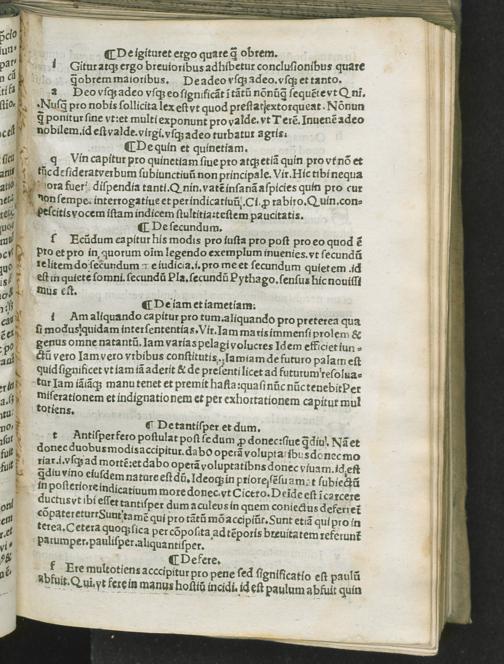 ¶De igitur et ergo quare q̃ obrem.
i Gitur atqȝ ergo breuioribus adhibetur conclusionibus quare
q̃obrem maioribus. De adeo vsqȝ adeo. vsqȝ et tanto.
a Deo vsqȝ adeo vsqȝ eo significãt ĩ tãtũ nõnũq̃ sequẽte vt Q ni.
Nusq̃ pro nobis sollicita lex est vt quod prestat extorqueat. Nõnun
q̃ ponitur sine vt: et multi exponunt pro valde. vt Terẽ. Inuenẽ adeo
nobilem. id est valde. virgi. vsqȝ adeo turbatur agris:
¶De quin et quinetiam.
q Vin capitur pro quinetiam siue pro atqȝ etiã quin pro vt nõ et
tũc desiderat verbum subiunctiuũ non principale. Vir. Hic tibi nequa
mora fuerĩ dispendia tanti. Q nin. vatẽ insanã aspicies quin pro cur
non sempe. interrogatiue et per indicatiuũ. Ci. ꝓ rabiro. Quin. con-
pescitis vocem istam indicem stultitia: testem paucitatis.
¶De secundum.
s Ecũdum capitur his modis pro iusta pro post pro eo quod ẽ
pro et pro in quorum oĩm legendo exemplum inuenies. vt secundũ
relitem do secundum te iudicia. i. pro me et secundum quietem. id
est in quiete somni. secundũ Pla. secundũ Pythago. sensus hic nouissi
mus est.
¶De iam et iametiam:
i Am aliquando capitur pro tum. aliquando pro preterea qua
si modus quidam inter sententias. Vir. Iam maris immensi prolem &
genus omne natantũ. Iam varias pelagi volucres Idem efficiet iun-
ctũ vero Iam vero vrbibus constitutis. Iam iam de futuro palam est
quid significet vt iam iã aderit & de presenti licet ad futurum resolua-
tur Iam iã iãqȝ manu tenet et premit hasta: quasi nũc nũc tenebit Per
miserationem et indignationem et per exhortationem capitur mul
totiens.
¶De tantisper et dum.
t Antisper fero postulat post se dum ꝓ donec: siue q̃diu. Nã et
donec duobus modis accipitur. da bo operã voluptatibus donec mo
riar. i. vsqȝ ad mortẽ: et dabo operã voluptatibns donec viuam. id est
q̃diu viuo eiusdem nature est dũ. Ideoqȝ in priore sẽsu amat subiectũ
in posteriore indicatiuum more donec. vt Cicero. Deĩde est ĩ carcere
ductus vt ibi esset tantisper dum aculeus in quem coniectus deferret
cõpateretur Sunt tamẽ qui pro tãtũ mõ accipiũt. Sunt etiã qui pro in
terea. Cetera quoqȝ sica per cõposita ad tẽporis breuitatem referunt
parumper. paulisper. aliquantisper.
¶De fere.
f Ere multotiens acccipitur pro pene sed significatio est paulũ
abfuit. Qui. vt fere in manus hostiũ incidi. id est paulum abfuit quin